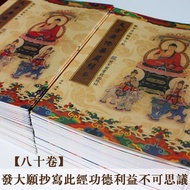 【八十卷】
發大願抄寫此經功德利益不可思議